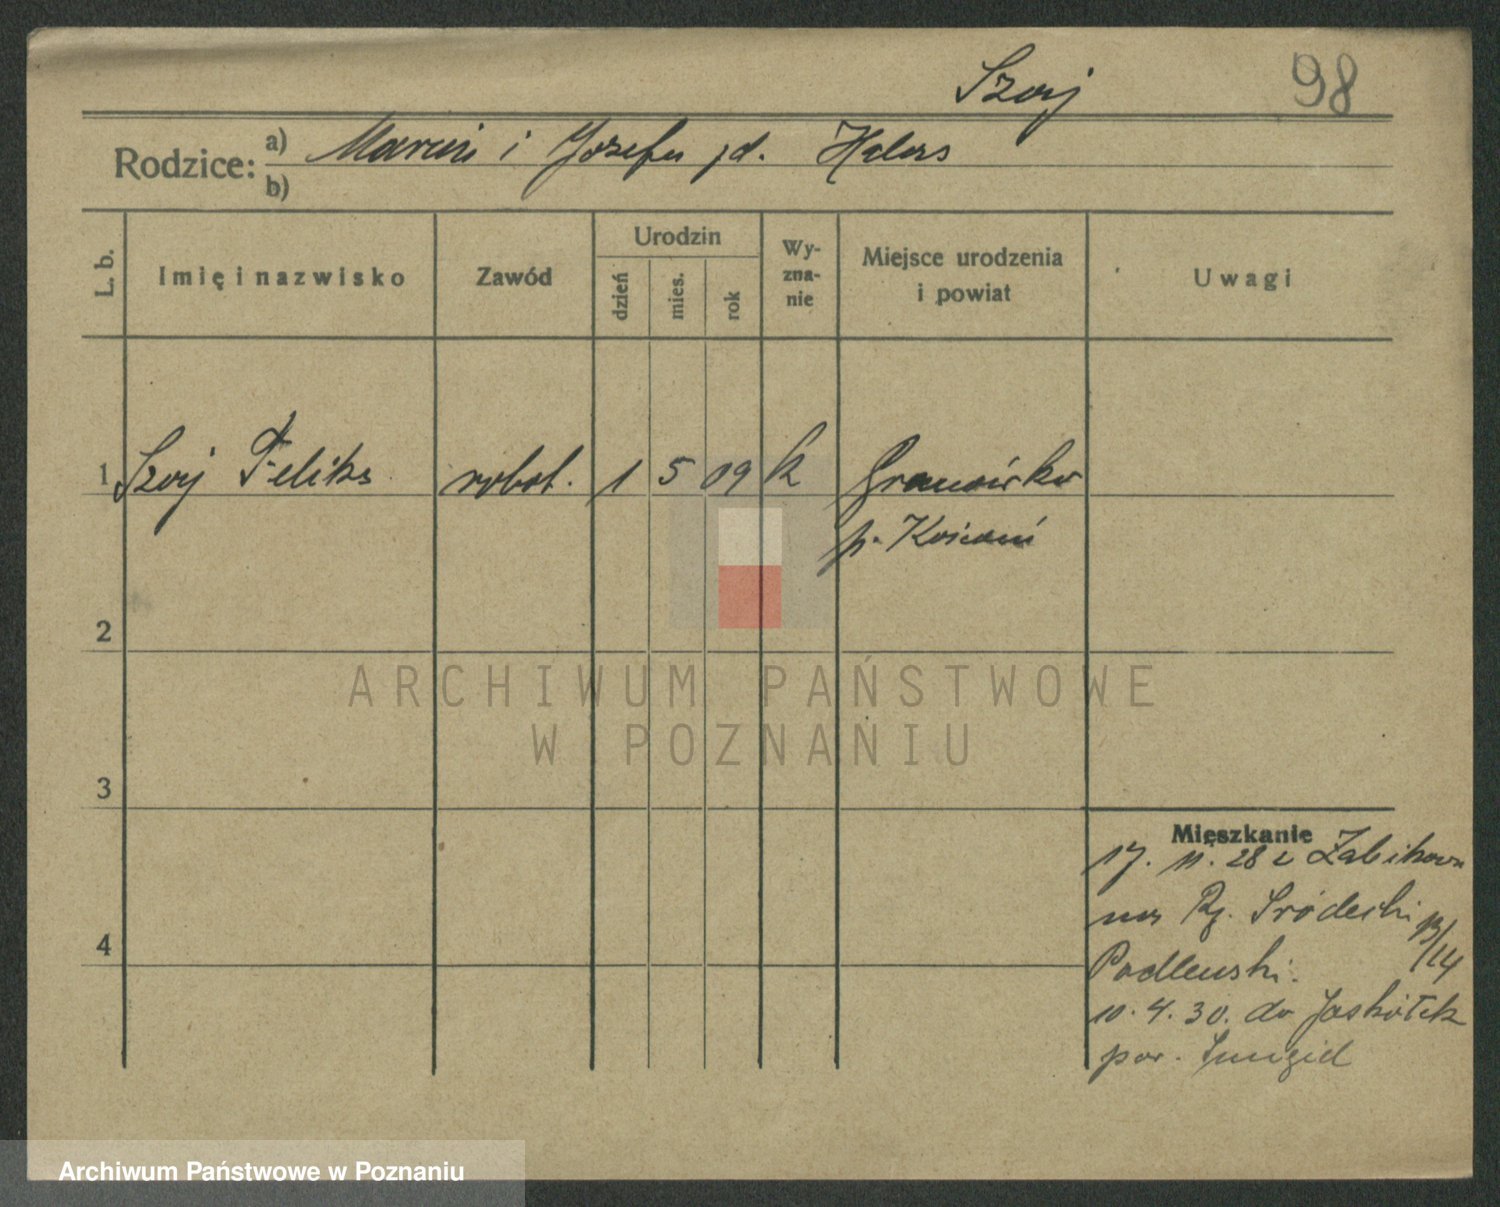 Szaj
98
Rodzice: a) Marcin i Józefa zd. Halas
b)
L. b. Imię i nazwisko Zawód Urodzin dzień mies. rok Wyznanie Miejsce urodzenia i powiat Uwagi
1 Szaj Feliks robot. 1 5 09 k Granówko
p. Kościań
2
3
4
Mieszkanie
17. 11. 28 z Żabikowa
na Rg. Śródecki 13/14
10. 4. 30. do Jaskółek
pow. Śmigiel
ARCHIWUM PAŃSTWOWE
W POZNANIU
Archiwum Państwowe w Poznaniu